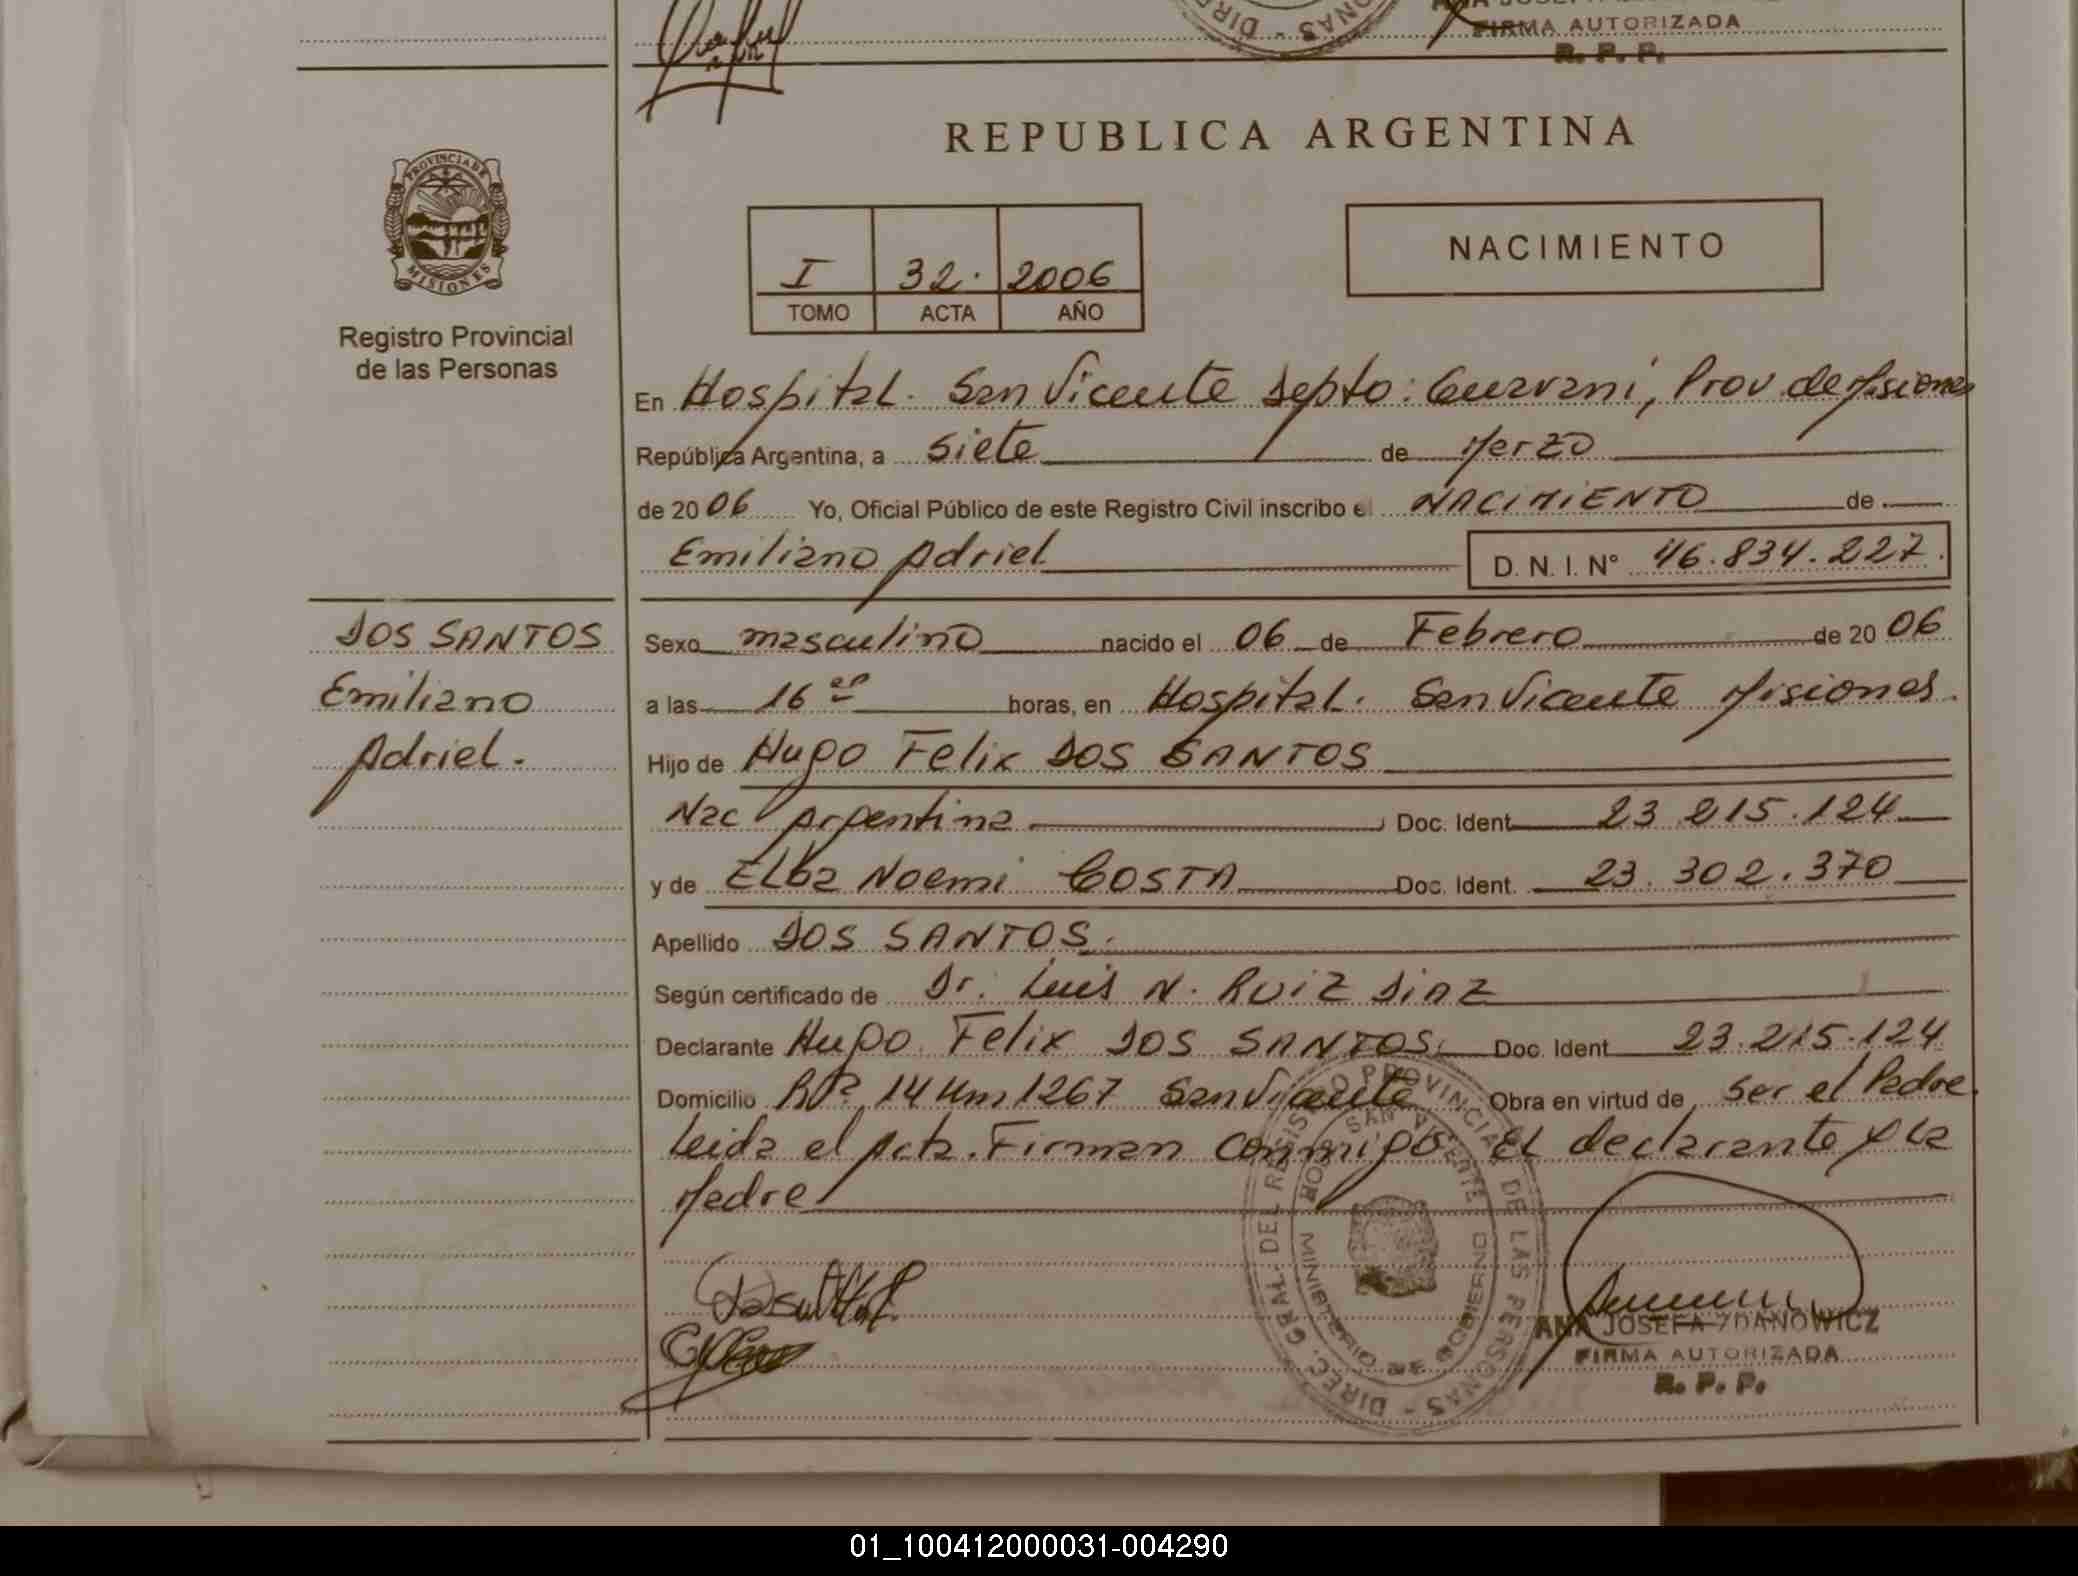 FIRMA AUTORIZADA
R. P. P.
PROVINCIA DE
MISIONES
Registro Provincial
de las Personas
REPUBLICA ARGENTINA
I 32. 2006
TOMO ACTA AÑO
NACIMIENTO
En Hospital. San Vicente Depto: Guarani, Prov. de Misiones
República Argentina, a siete de Marzo
de 2006 Yo, Oficial Público de este Registro Civil inscribo el NACIMIENTO de
Emiliano Adriel D. N. I. N° 46.834.227.
DOS SANTOS
Emiliano
Adriel.
Sexo masculino nacido el 06 de Febrero de 2006
a las 16 horas, en Hospital. San Vicente Misiones.
Hijo de Hugo Felix DOS SANTOS
Nac Argentina Doc. Ident 23 215.124
y de Elba Noemi COSTA Doc. Ident. 23. 302.370
Apellido DOS SANTOS.
Según certificado de Dr. Luis N. RUIZ DIAZ
Declarante Hugo Felix DOS SANTOS Doc. Ident 23.215.124
Domicilio 14 Km 1267 San Vicente Obra en virtud de ser el Padre
Leida el Acta. Firman conmigo El declarante y la
Madre
DIREC. GRAL. DEL REGISTRO PROVINCIAL DE LAS PERSONAS
SAN VICENTE
GOBIERNO
ANA JOSEFA ZDANOWICZ
FIRMA AUTORIZADA
R. P. P.
01_100412000031-004290